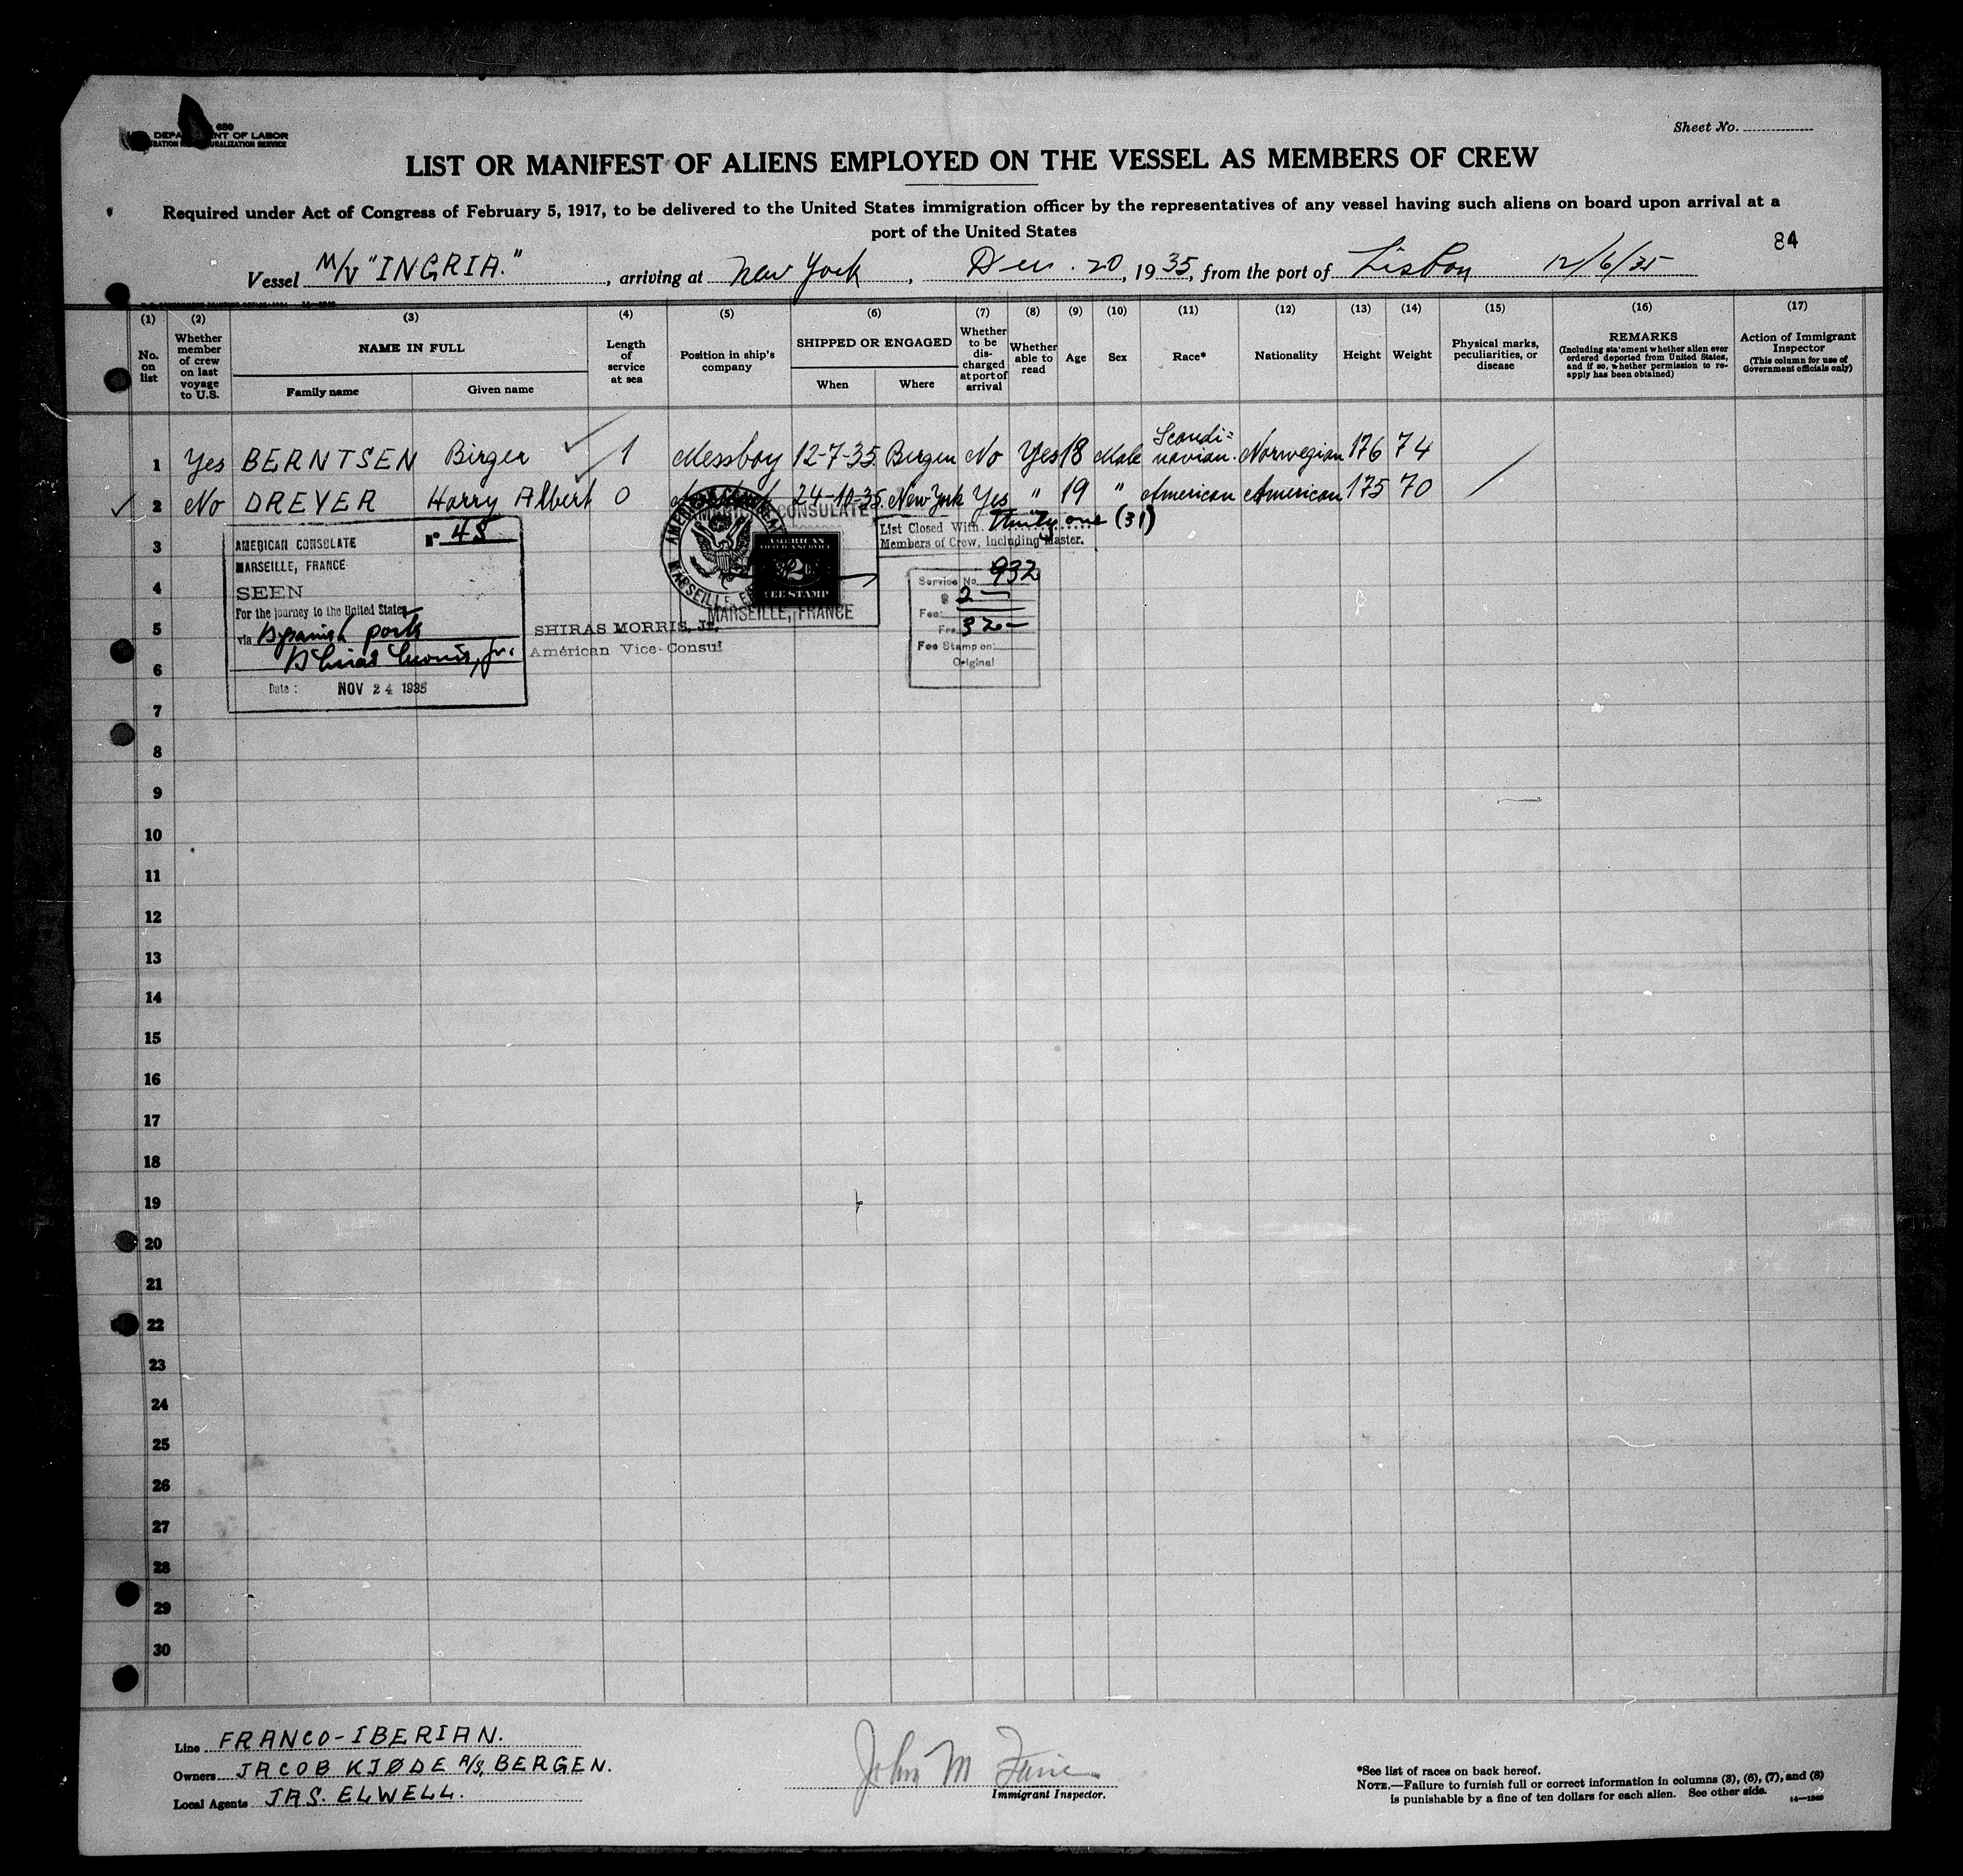 680
DEPARTMENT OF LABOR
NATURALIZATION SERVICE
Sheet No.
LIST OR MANIFEST OF ALIENS EMPLOYED ON THE VESSEL AS MEMBERS OF CREW
Required under Act of Congress of February 5, 1917, to be delivered to the United States immigration officer by the representatives of any vessel having such aliens on board upon arrival at a
port of the United States
84
Vessel M/V "INGRIA.", arriving at New York, Dec. 20, 1935, from the port of Lisbon 12/6/35
(1) (2) (3) (4) (5) (6) (7) (8) (9) (10) (11) (12) (13) (14) (15) (16) (17)
No. on list
Whether member of crew on last voyage to U.S.
NAME IN FULL
Family name
Given name
Length of service at sea
Position in ship's company
SHIPPED OR ENGAGED
When
Where
Whether to be discharged at port of arrival
Whether able to read
Age
Sex
Race*
Nationality
Height
Weight
Physical marks, peculiarities, or disease
REMARKS
(Including statement whether alien ever ordered deported from United States, and if so, whether permission to re-apply has been obtained)
Action of Immigrant Inspector
(This column for use of Government officials only)
1 Yes BERNTSEN Birger 1 Messboy 12-7-35. Bergen No Yes 18 Male Scandi= navian. Norwegian 176 74
2 No DREYER Harry Albert 0 24-10-35. New York Yes " 19 " American American 175 70
3
4
5
6
7
8
9
10
11
12
13
14
15
16
17
18
19
20
21
22
23
24
25
26
27
28
29
30
AMERICAN CONSULATE
No 45
MARSEILLE, FRANCE
SEEN
For the journey to the United States
via Spanish ports
Shiras Morris, Jr.
Date: NOV 24 1935
SHIRAS MORRIS, Jr.
American Vice-Consul
AMERICAN CONSULATE
MARSEILLE, FRANCE
AMERICAN
FOREIGN SERVICE
2
FEE STAMP
MARSEILLE, FRANCE
List Closed With Thirty one (31)
Members of Crew, Including Master.
Service No. 932
$ 2—
Fee:
Frs. 32—
Fee Stamp on:
Original
Line FRANCO-IBERIAN.
Owners JACOB KJØDE A/S, BERGEN.
Local Agents JAS. ELWELL.
John M
Immigrant Inspector.
*See list of races on back hereof.
NOTE.—Failure to furnish full or correct information in columns (3), (6), (7), and (8)
is punishable by a fine of ten dollars for each alien. See other side.
14—1240